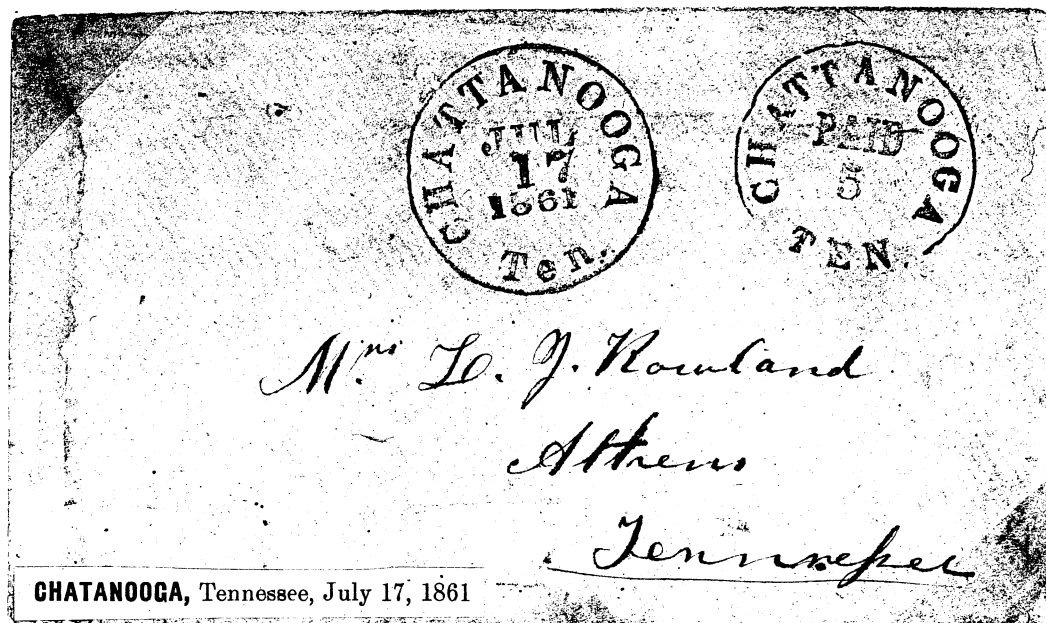 CHATTANOOGA
JUL
17
1861
Ten.
CHATTANOOGA
PAID
5
TEN.
Mrs L. J. Rowland
Athens
Tennessee
CHATANOOGA, Tennessee, July 17, 1861